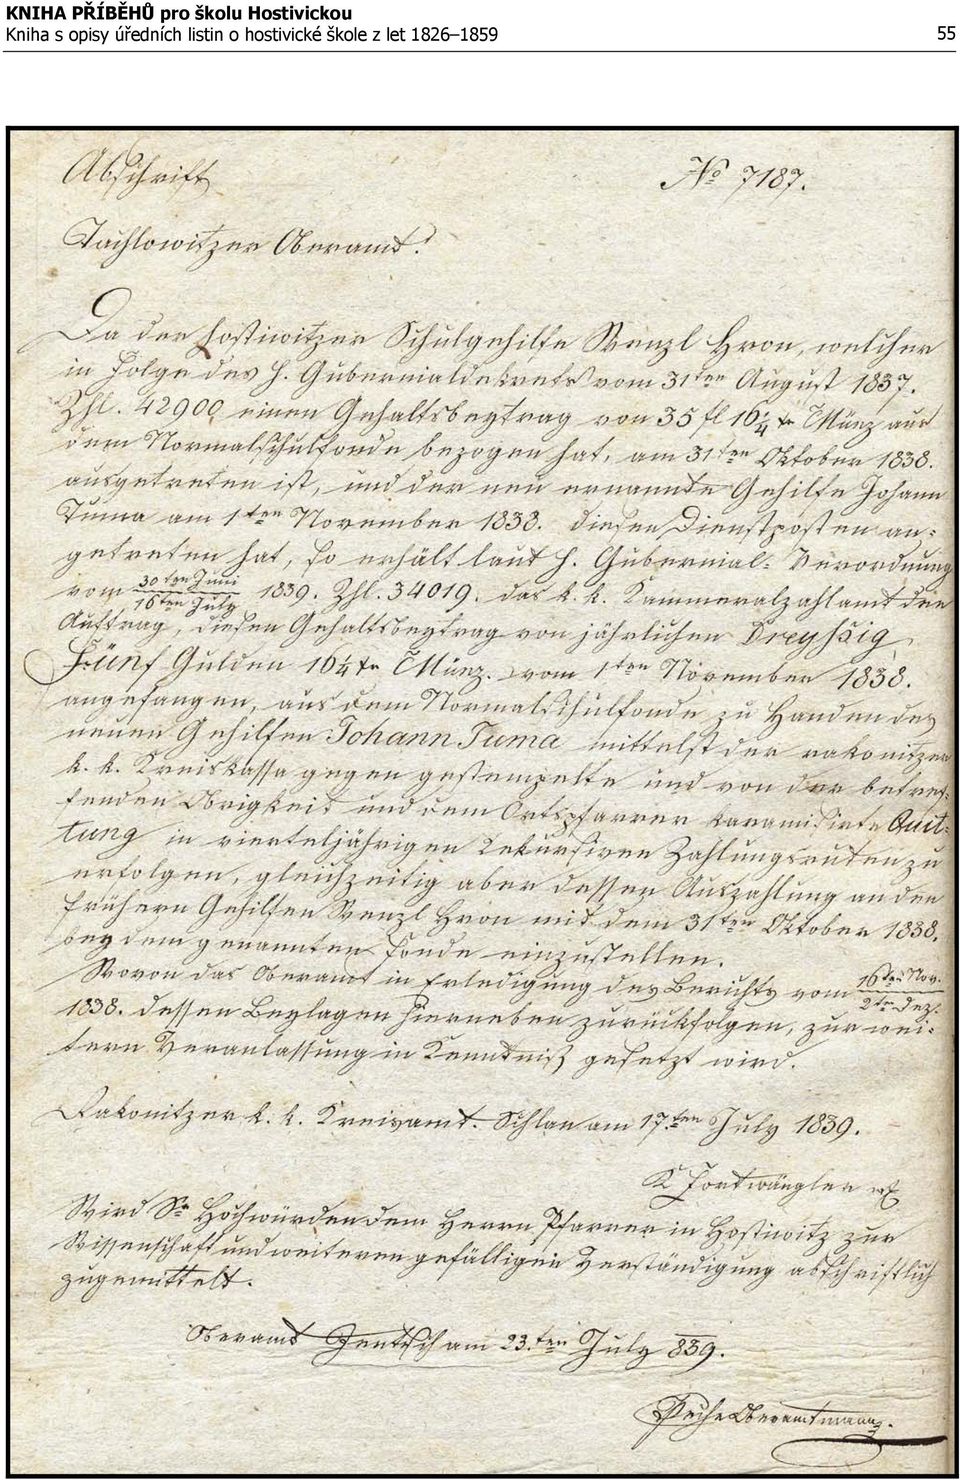 KNIHA PŘÍBĚHŮ pro školu Hostivickou
Kniha s opisy úředních listin o hostivické škole z let 1826–1859 55
Abschrift No 7187.
Tachlowitzer Oberamt!
Da der Hostiwitzer Schulgehilfe Wenzl Hron, welcher
in Folge des h. Gubernialdekrets vom 31ten August 1837.
Zhl. 42900 einen Gehaltsbeytrag von 35 fl 16 1/4 xr CMünz aus
dem Normalschulfonde bezogen hat, am 31ten Oktober 1838.
ausgetreten ist, und der neu ernannte Gehilfe Johann
Tuma am 1ten November 1838. diesen Dienstposten an-
getreten hat, so erhält laut h. Gubernial-Verordnung
vom 30ten Juni / 16ten July 1839. Zhl. 34019. das k. k. Kammeralzahlamt den
Auftrag, diesen Gehaltsbeytrag von jährlichen Dreyßig
Fünf Gulden 16 1/4 xr CMünz. vom 1ten November 1838.
angefangen, aus dem Normalschulfonde zu Handen des
neuen Gehilfen Johann Tuma mittelst der rakonitzer
k. k. Kreiskassa gegen gestempelte und von der betref-
fenden Obrigkeit und dem Ortspfarrer koramisirte Quit-
tung in vierteljährigen dekursiven Zahlungsraten zu
erfolgen, gleichzeitig aber dessen Auszahlung an den
frühern Gehilfen Wenzl Hron mit dem 31ten Oktober 1838.
bey dem genannten Fonde einzustellen.
Wovon das Oberamt in Erledigung des Berichts vom 16ten Nov. / 2ten Dez.
1838. dessen Beylagen hierneben zurückfolgen, zur wei-
tern Veranlassung in Kenntniß gesetzt wird.
Rakonitzer k. k. Kreisamt. Schlan am 17.ten July 1839.
Wird Sr Hochwürden dem Herrn Pfarrer in Hostiwitz zur
Wissenschaft und weiteren gefälligen Verständigung abschriftlich
zugemittelt.
Oberamt Jentsch am 23.ten July 839.
Oberamtmann.